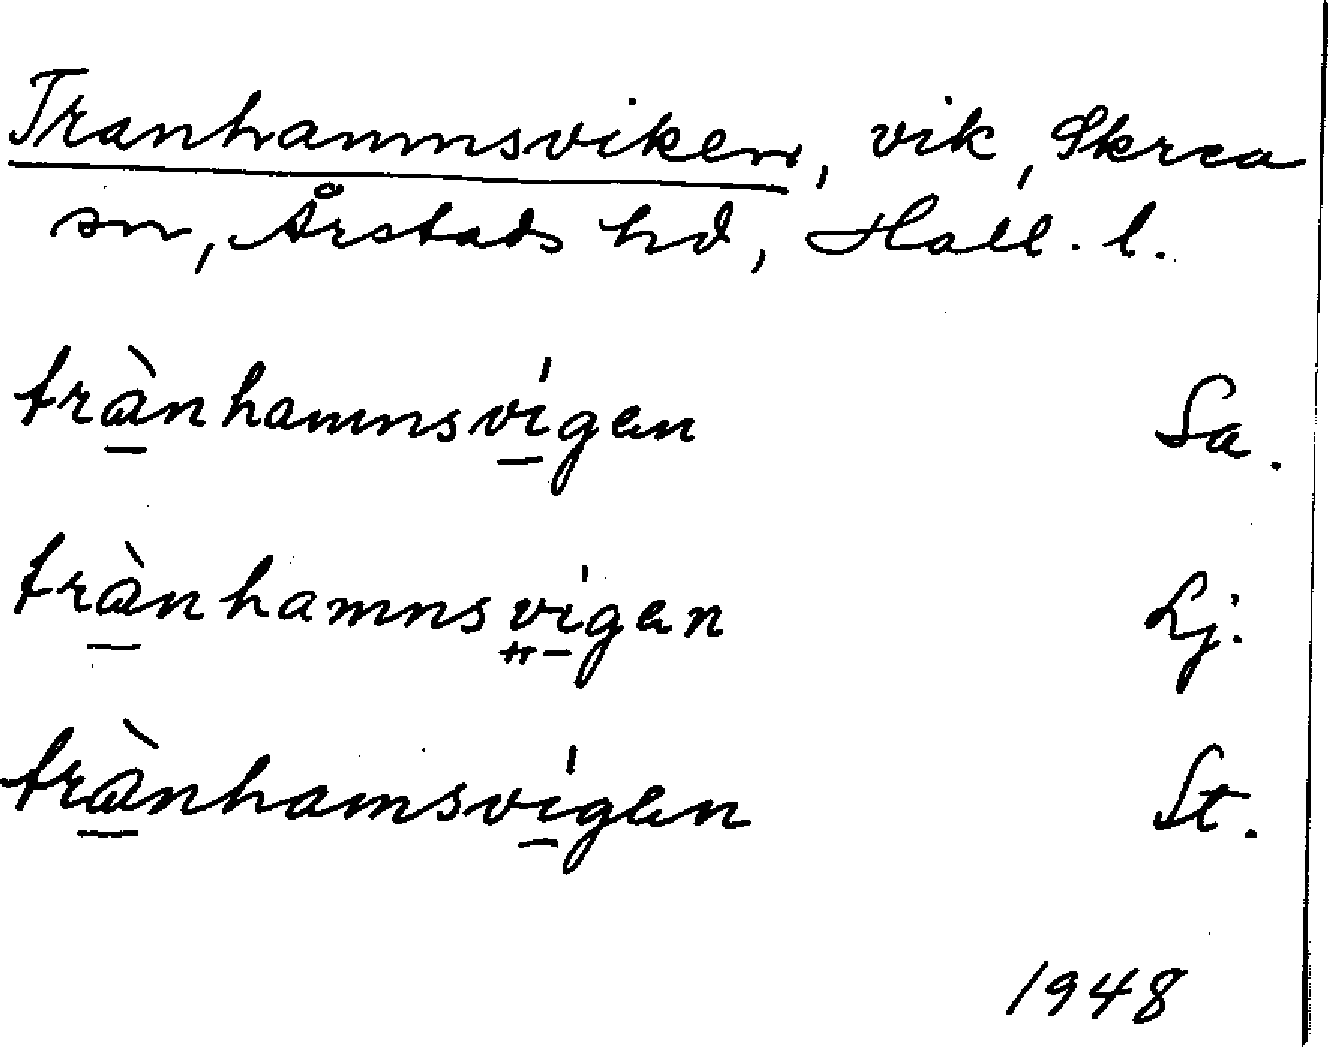 Tranhamnsviken, vik, Skrea
sn, Årstads hd, Hall. l.
trànhamnsvígen Sa.
trànhamnsvígen Lj.
trànhamsvígen St.
1948